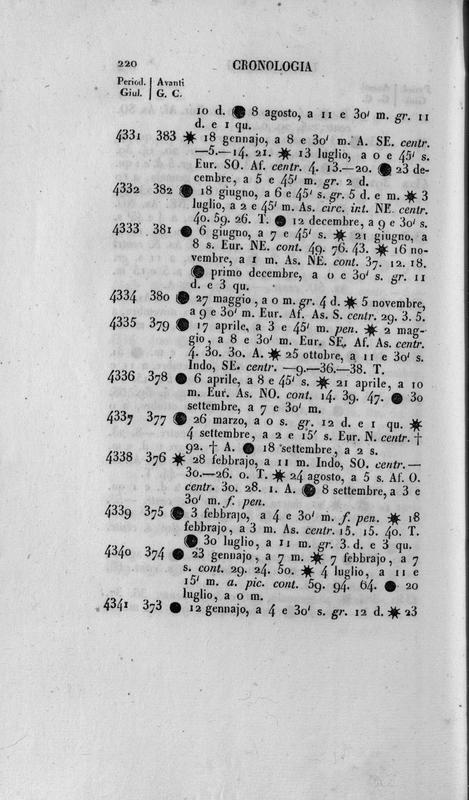 220 CRONOLOGIA
Period. | Avanti
Giul. | G. C.
10 d. ● 8 agosto, a 11 e 30' m. gr. 11
d. e 1 qu.
4331 383 ✷ 18 gennajo, a 8 e 30' m. A. SE. centr.
—5.— 14. 21. ✷ 13 luglio, a 0 e 45' s.
Eur. SO. Af. centr. 4. 13.—20. ● 23 de-
cembre, a 5 e 45' m. gr. 2 d.
4332 382 ● 18 giugno, a 6 e 45' s. gr. 5 d. e m. ✷ 3
luglio, a 2 e 45' m. As. circ. int. NE. centr.
40. 59. 26. T. ● 12 decembre, a 9 e 30' s.
4333 381 ● 6 giugno, a 7 e 45' s. ✷ 21 giugno, a
8 s. Eur. NE. cont. 49. 76. 43. ✷ 16 no-
vembre, a 1 m. As. NE. cont. 37. 12. 18.
● primo decembre, a 0 e 30' s. gr. 11
d. e 3 qu.
4334 380 ● 27 maggio, a 0 m. gr. 4 d. ✷ 5 novembre,
a 9 e 30' m. Eur. Af. As. S. centr. 29. 3. 5.
4335 379 ● 17 aprile, a 3 e 45' m. pen. ✷ 2 mag-
gio, a 8 e 30' m. Eur. SE. Af. As. centr.
4. 30. 30. A. ✷ 25 ottobre, a 11 e 30' s.
Indo, SE. centr. —9.—36.—38. T.
4336 378 ● 6 aprile, a 8 e 45' s. ✷ 21 aprile, a 10
m. Eur. As. NO. cont. 14. 39. 47. ● 30
settembre, a 7 e 30' m.
4337 377 ● 26 marzo, a 0 s. gr. 12 d. e 1 qu. ✷
4 settembre, a 2 e 15' s. Eur. N. centr. †
92. † A. ● 18 settembre, a 2 s.
4338 376 ✷ 28 febbrajo, a 11 m. Indo, SO. centr. —
30.—26. 0. T. ✷ 24 agosto, a 5 s. Af. O.
centr. 30. 28. 1. A. ● 8 settembre, a 3 e
30' m. f. pen.
4339 375 ● 3 febbrajo, a 4 e 30' m. f. pen. ✷ 18
febbrajo, a 3 m. As. centr. 15. 15. 40. T.
● 30 luglio, a 11 m. gr. 3 d. e 3 qu.
4340 374 ● 23 gennajo, a 7 m. ✷ 7 febbrajo, a 7
s. cont. 29. 24. 50. ✷ 4 luglio, a 11 e
15' m. a. pic. cont. 59. 94. 64. ● 20
luglio, a 0 m.
4341 373 ● 12 gennajo, a 4 e 30' s. gr. 12 d. ✷ 23